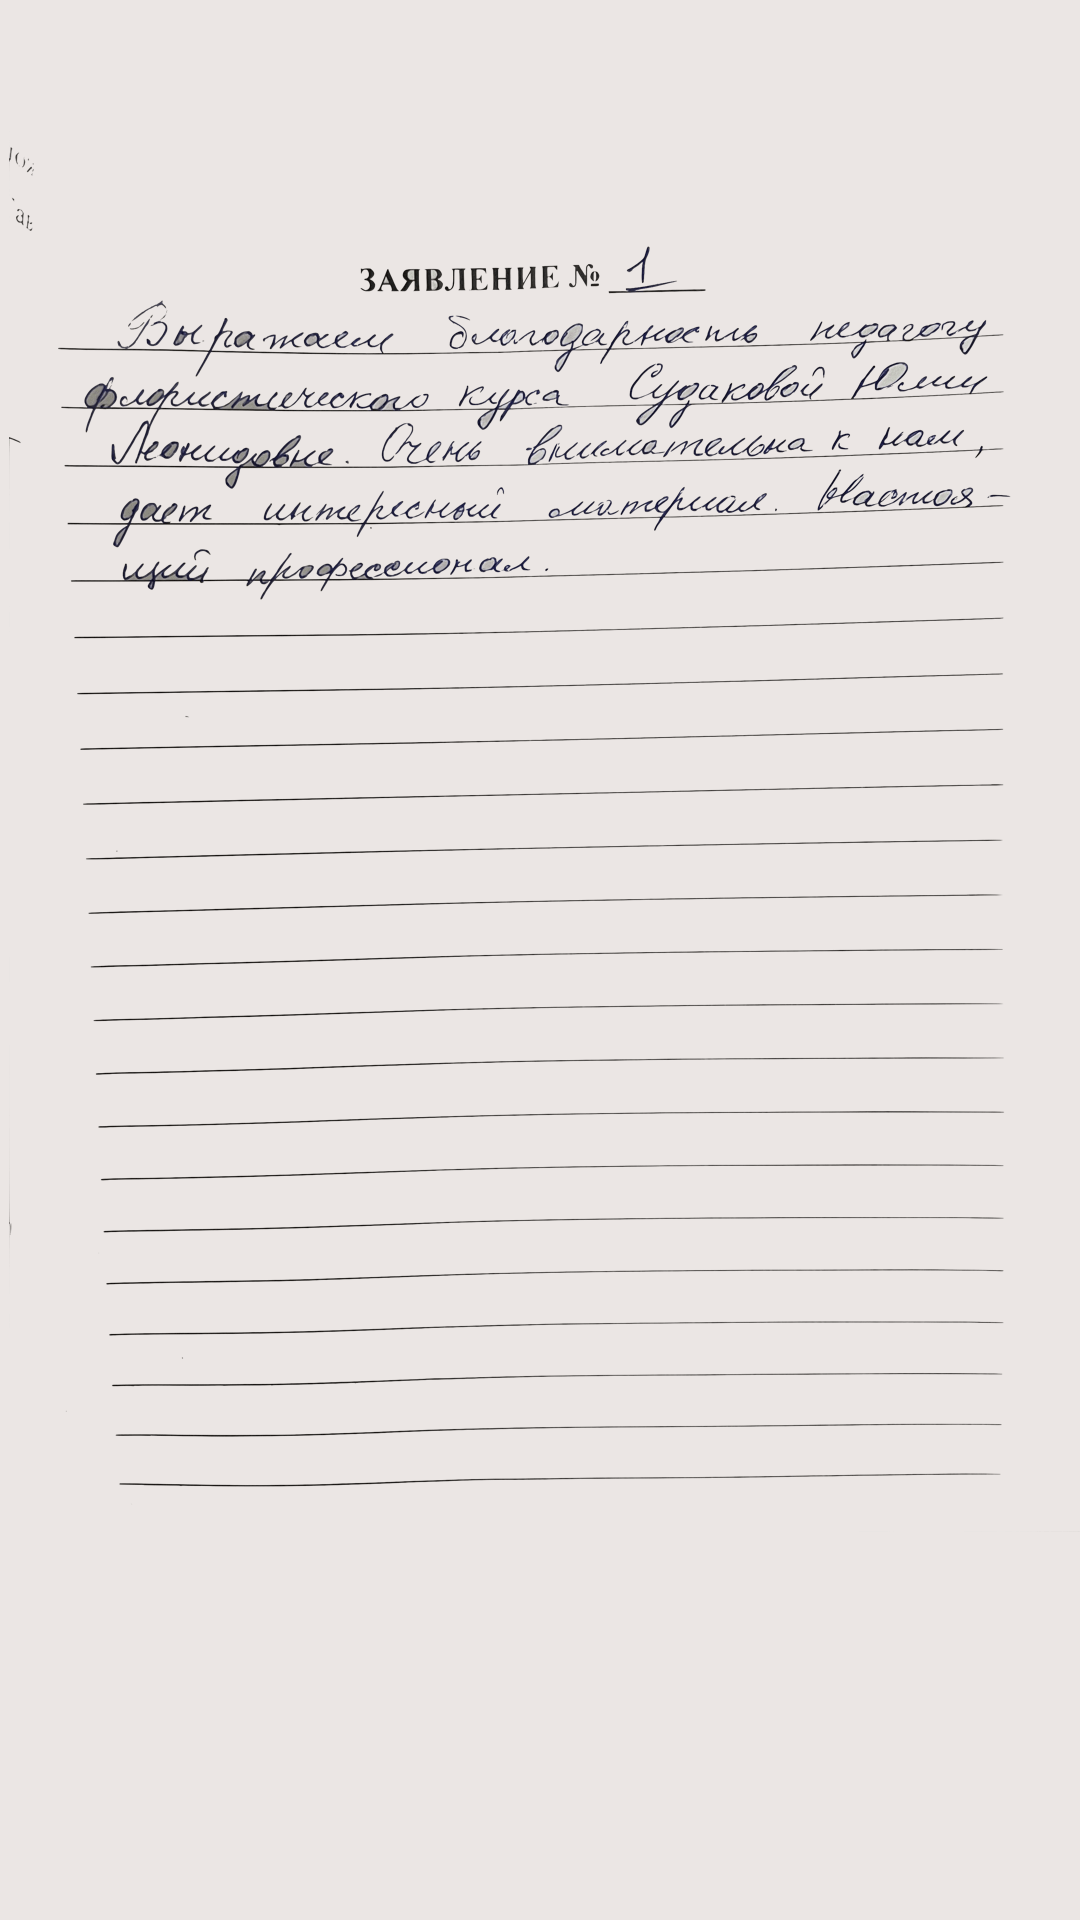 ЗАЯВЛЕНИЕ № 1
Выражаем благодарность педагогу
флористического курса Судаковой Юлии
Леонидовне. Очень внимательна к нам,
дает интересный материал. Настоя-
щий профессионал.